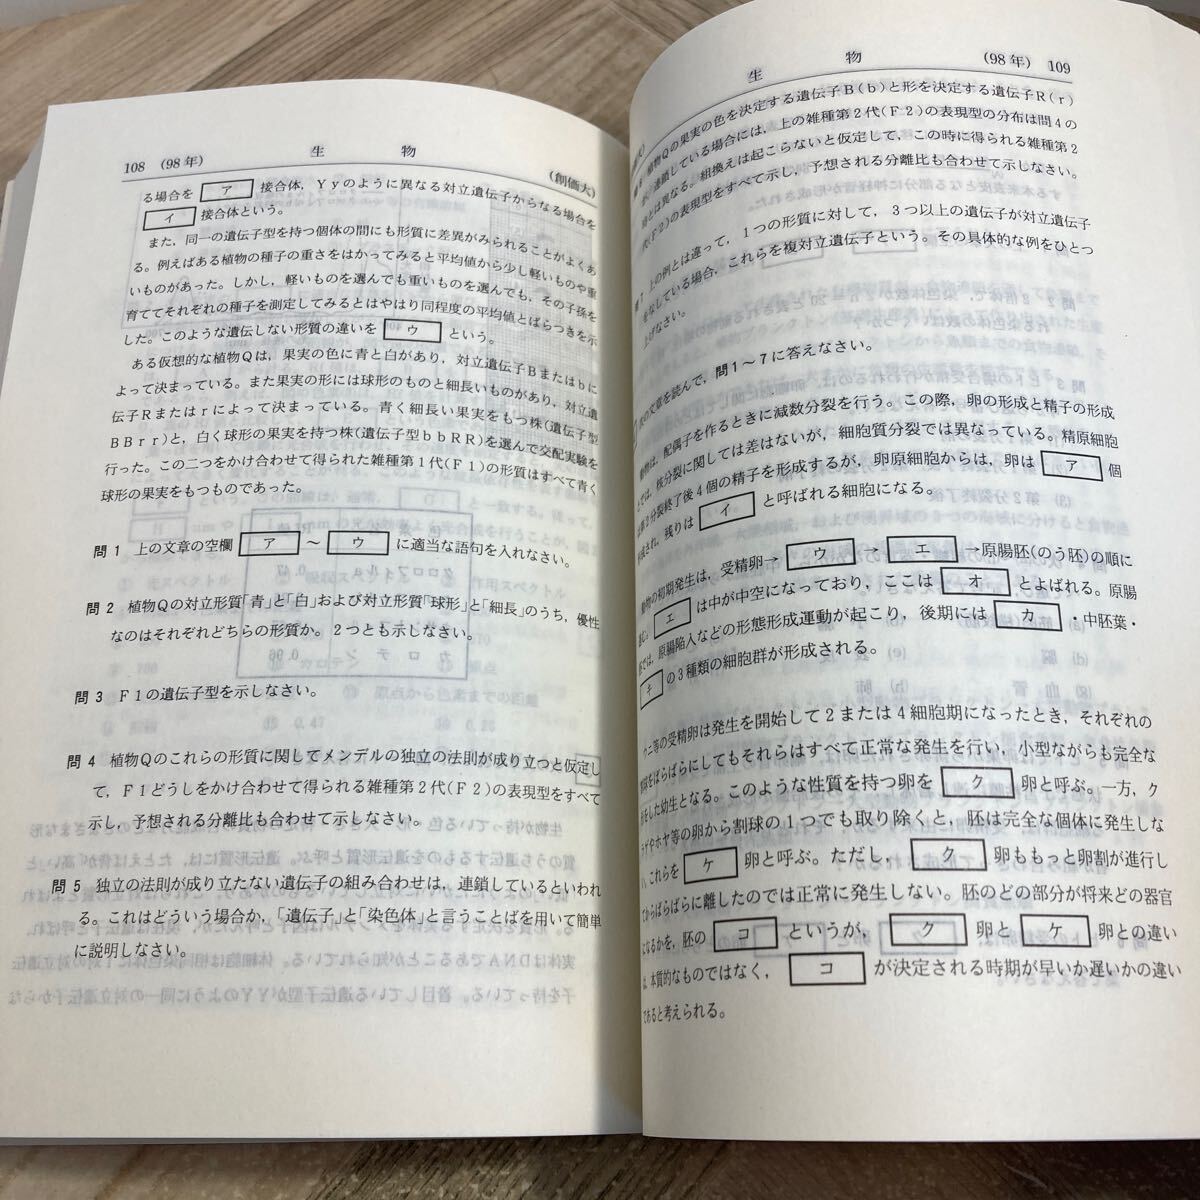 108 (98年) 生物 (創価大)
る場合を ア 接合体，Yyのように異なる対立遺伝子からなる場合を
イ 接合体という。
また，同一の遺伝子型を持つ個体の間にも形質に差異がみられることがよくあ
る。例えばある植物の種子の重さをはかってみると平均値から少し軽いものや重
いものがあった。しかし，軽いものを選んでも重いものを選んでも，その子孫を
育ててそれぞれの種子を測定してみるとはやはり同程度の平均値とばらつきを示
した。このような遺伝しない形質の違いを ウ という。
ある仮想的な植物Qは，果実の色に青と白があり，対立遺伝子Bまたはbに
よって決まっている。また果実の形には球形のものと細長いものがあり，対立遺
伝子Rまたはrによって決まっている。青く細長い果実をもつ株(遺伝子型
BBrr)と，白く球形の果実を持つ株(遺伝子型bbRR)を選んで交配実験を
行った。この二つをかけ合わせて得られた雑種第1代(F1)の形質はすべて青く
球形の果実をもつものであった。
問1 上の文章の空欄 ア ～ ウ に適当な語句を入れなさい。
問2 植物Qの対立形質「青」と「白」および対立形質「球形」と「細長」のうち，優性
なのはそれぞれどちらの形質か。2つとも示しなさい。
問3 F1の遺伝子型を示しなさい。
問4 植物Qのこれらの形質に関してメンデルの独立の法則が成り立つと仮定し
て，F1どうしをかけ合わせて得られる雑種第2代(F2)の表現型をすべて
示し，予想される分離比も合わせて示しなさい。
問5 独立の法則が成り立たない遺伝子の組み合わせは，連鎖しているといわれ
る。これはどういう場合か，「遺伝子」と「染色体」と言うことばを用いて簡単
に説明しなさい。
生物 (98年) 109
植物Qの果実の色を決定する遺伝子B(b)と形を決定する遺伝子R(r)
が連鎖している場合には，上の雑種第2代(F2)の表現型の分布は問4の
とは異なる。組換えは起こらないと仮定して，この時に得られる雑種第2
代(F2)の表現型をすべて示し，予想される分離比も合わせて示しなさい。
上の例とは違って，1つの形質に対して，3つ以上の遺伝子が対立遺伝子
をなしている場合，これらを複対立遺伝子という。その具体的な例をひとつ
上げなさい。
の文章を読んで，問1～7に答えなさい。
動物は，配偶子を作るときに減数分裂を行う。この際，卵の形成と精子の形成
とでは，核分裂に関しては差はないが，細胞質分裂では異なっている。精原細胞
は第2分裂終了後4個の精子を形成するが，卵原細胞からは，卵は ア 個
形成され，残りは イ と呼ばれる細胞になる。
動物の初期発生は，受精卵→ ウ → エ →原腸胚(のう胚)の順に
進む。 エ は中が中空になっており，ここは オ とよばれる。原腸
胚では，原腸陥入などの形態形成運動が起こり，後期には カ ・中胚葉・
キ の3種類の細胞群が形成される。
ウニ等の受精卵は発生を開始して2または4細胞期になったとき，それぞれの
割球をばらばらにしてもそれらはすべて正常な発生を行い，小型ながらも完全な
形をした幼生となる。このような性質を持つ卵を ク 卵と呼ぶ。一方，ク
ラゲやホヤ等の卵から割球の1つでも取り除くと，胚は完全な個体に発生しな
い。これらを ケ 卵と呼ぶ。ただし， ク 卵ももっと卵割が進行し
てからばらばらに離したのでは正常に発生しない。胚のどの部分が将来どの器官
になるかを，胚の コ というが， ク 卵と ケ 卵との違い
は，本質的なものではなく， コ が決定される時期が早いか遅いかの違い
であると考えられる。